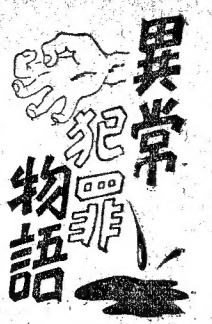 異常
犯罪
物語